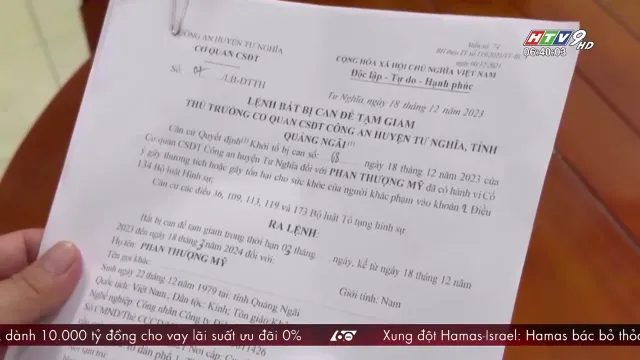 HTV9 HD
06:40:03
CÔNG AN HUYỆN TƯ NGHĨA
CƠ QUAN CSĐT
Số: 07 /LB-ĐTTH
Mẫu số: 74
CỘNG HÒA XÃ HỘI CHỦ NGHĨA VIỆT NAM
Độc lập - Tự do - Hạnh phúc
Tư Nghĩa, ngày 18 tháng 12 năm 2023
LỆNH BẮT BỊ CAN ĐỂ TẠM GIAM
THỦ TRƯỞNG CƠ QUAN CSĐT CÔNG AN HUYỆN TƯ NGHĨA, TỈNH
QUẢNG NGÃI
Căn cứ Quyết định Khởi tố bị can số: ngày 18 tháng 12 năm 2023 của
Cơ quan CSĐT Công an huyện Tư Nghĩa đối với PHAN THƯỢNG MỸ đã có hành vi Cố
ý gây thương tích hoặc gây tổn hại cho sức khỏe của người khác phạm vào khoản Điều
134 Bộ luật Hình sự;
Căn cứ các điều 36, 109, 113, 119 và 173 Bộ luật Tố tụng hình sự.
RA LỆNH:
Bắt bị can để tạm giam trong thời hạn 03 ngày, kể từ ngày 18 tháng 12 năm
2023 đến ngày 18 tháng 3 năm 2024 đối với:
Họ tên: PHAN THƯỢNG MỸ
Giới tính: Nam
Tên gọi khác:
Sinh ngày 22 tháng 12 năm 1979 tại: tỉnh Quảng Ngãi
Quốc tịch: Việt Nam; Dân tộc: Kinh; Tôn giáo:
Nghề nghiệp: Công nhân Công ty
Số CMND/Thẻ CCCD
dành 10.000 tỷ đồng cho vay lãi suất ưu đãi 0%
60
Xung đột Hamas-Israel: Hamas bác bỏ thỏ